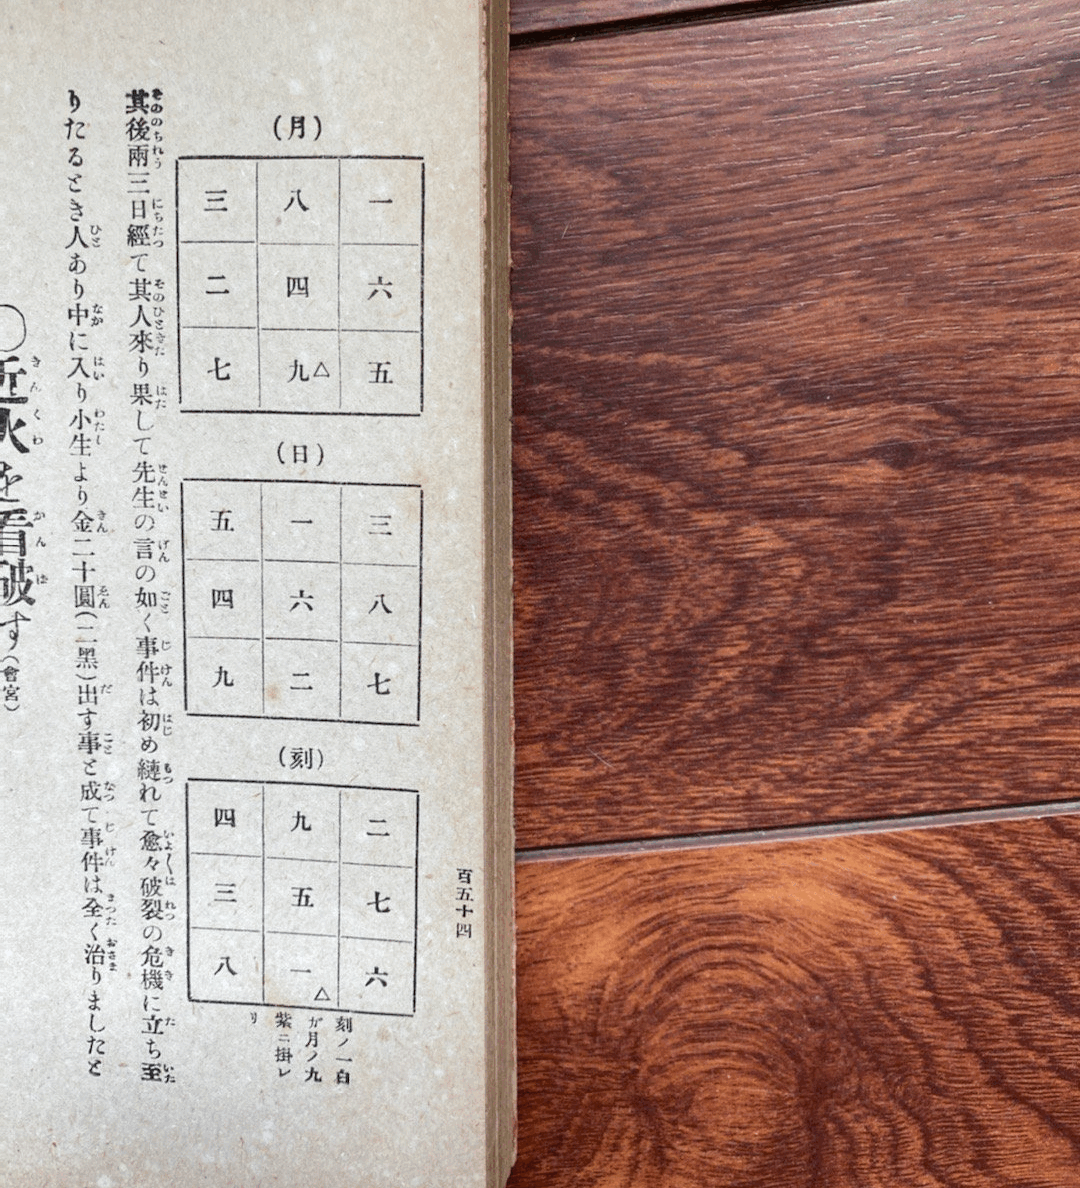 百五十四
(月)
三 八 一
二 四 六
七 九△ 五
(日)
五 一 三
四 六 八
九 二 七
(刻)
四 九 二
三 五 七
八 一△ 六
刻ノ一白
ガ月ノ九
紫ニ掛レ
リ
其後兩三日經て其人來り果して先生の言の如く事件は初め縺れて愈々破裂の危機に立ち至
りたるとき人あり中に入り小生より金二十圓(二黑)出す事と成て事件は全く治りましたと
〇近火を看破す(會宮)